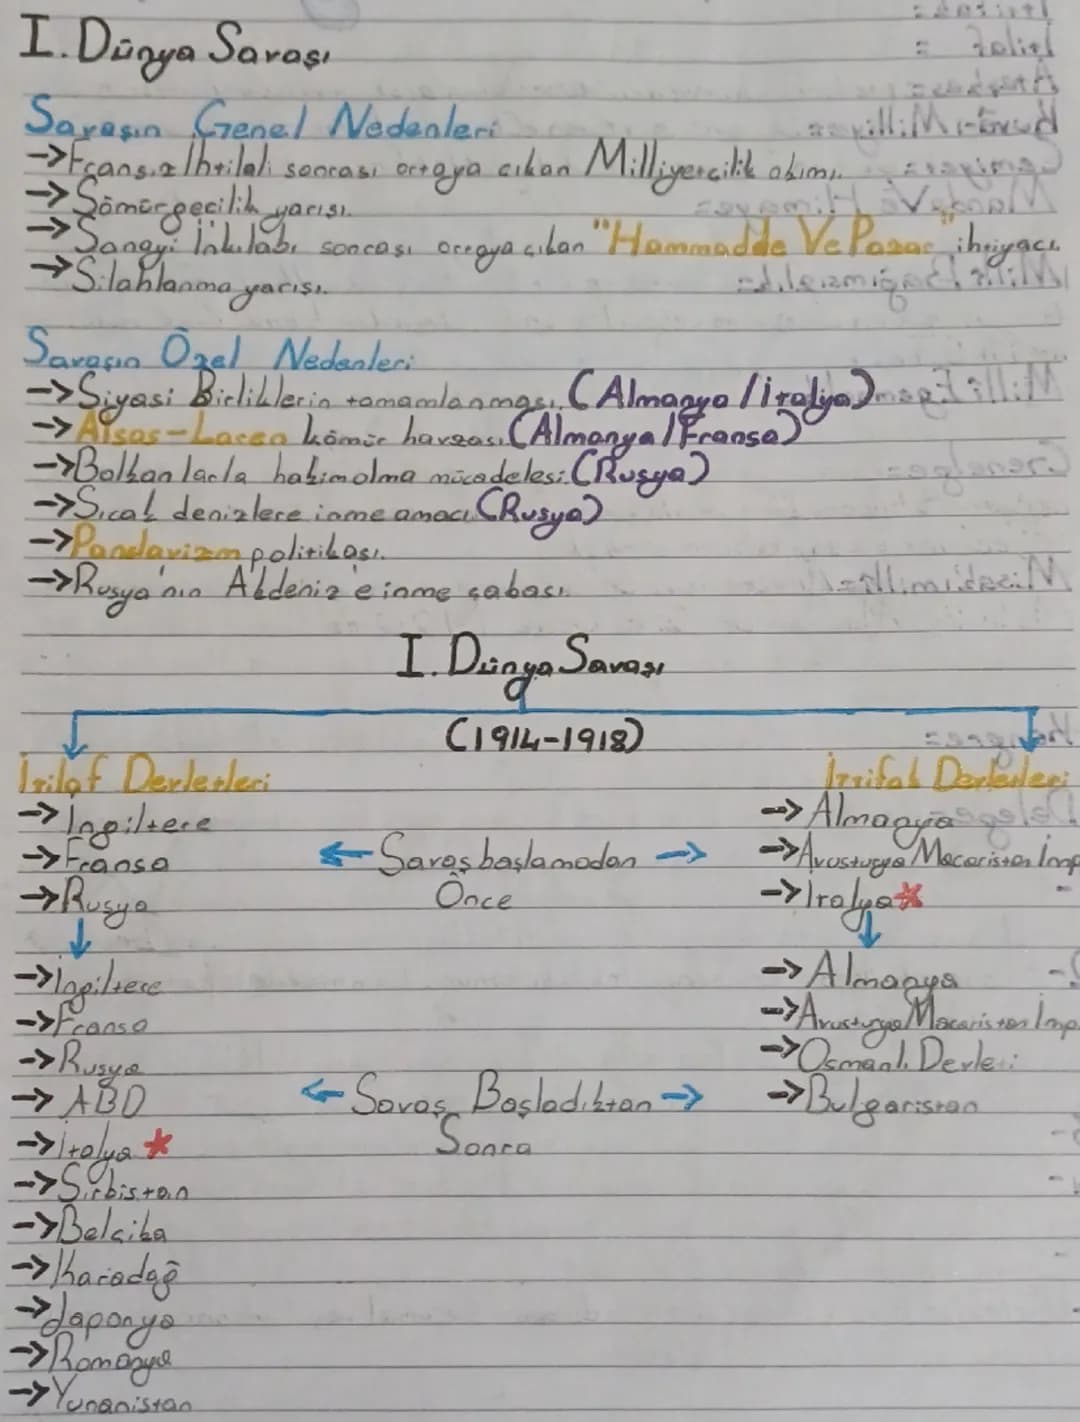 I. Dünya Savaşı
Savaşın Genel Nedenleri
→Fransız İhtilali sonrası ortaya çıkan Milliyetçilik akımı.
→Sömürgecilik yarışı.
→Sanayi İnkılabı sonrası ortaya çıkan "Hammadde Ve Pazar" ihtiyacı.
→Silahlanma yarışı.
Savaşın Özel Nedenleri
→Siyasi Birliklerin tamamlanması. (Almanya / İtalya)
→Alsas-Loren kömür havzası (Almanya / Fransa)
→Balkanlarla hakim olma mücadelesi (Rusya)
→Sıcak denizlere inme amacı (Rusya)
→Panslavizm politikası.
→Rusya'nın Akdeniz'e inme çabası.
I. Dünya Savaşı
(1914-1918)
İtilaf Devletleri İttifak Devletleri
→İngiltere →Almanya
→Fransa ← Savaş başlamadan → →Avusturya Macaristan İmp
→Rusya Önce →İtalya*
→İngiltere →Almanya
→Fransa →Avusturya Macaristan İmp
→Rusya →Osmanlı Devleti
→ABD ← Savaş Başladıktan → →Bulgaristan
→İtalya * Sonra
→Sırbistan
→Belçika
→Karadağ
→Japonya
→Romanya
→Yunanistan